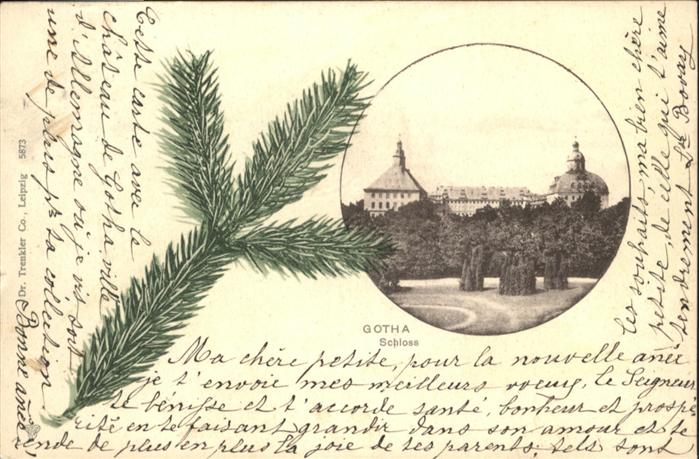 GOTHA
Schloss
Ma chère petite, pour la nouvelle anée
je t'envoie mes meilleurs voeux, le Seigneur
te bénisse et t'accorde santé, bonheur et prospé
rité en te faisant grandir dans son amour et te
rende de plus en plus la joie de tes parents; tels sont
les souhaits, ma bien chère
petite, de celle qui t'aime
tendrement. Bovay
Cette carte avec le
château de Gotha ville
d'Allemagne où je vis sont
une de plus pr ta collection
Bonne anée
Dr. Trenkler Co., Leipzig 5873